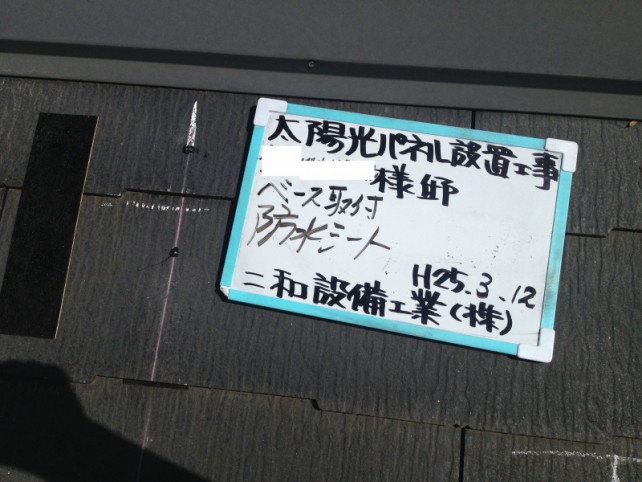 太陽光パネル設置工事
様邸
ベース取付
防水シート
H25.3.12
二和設備工業(株)